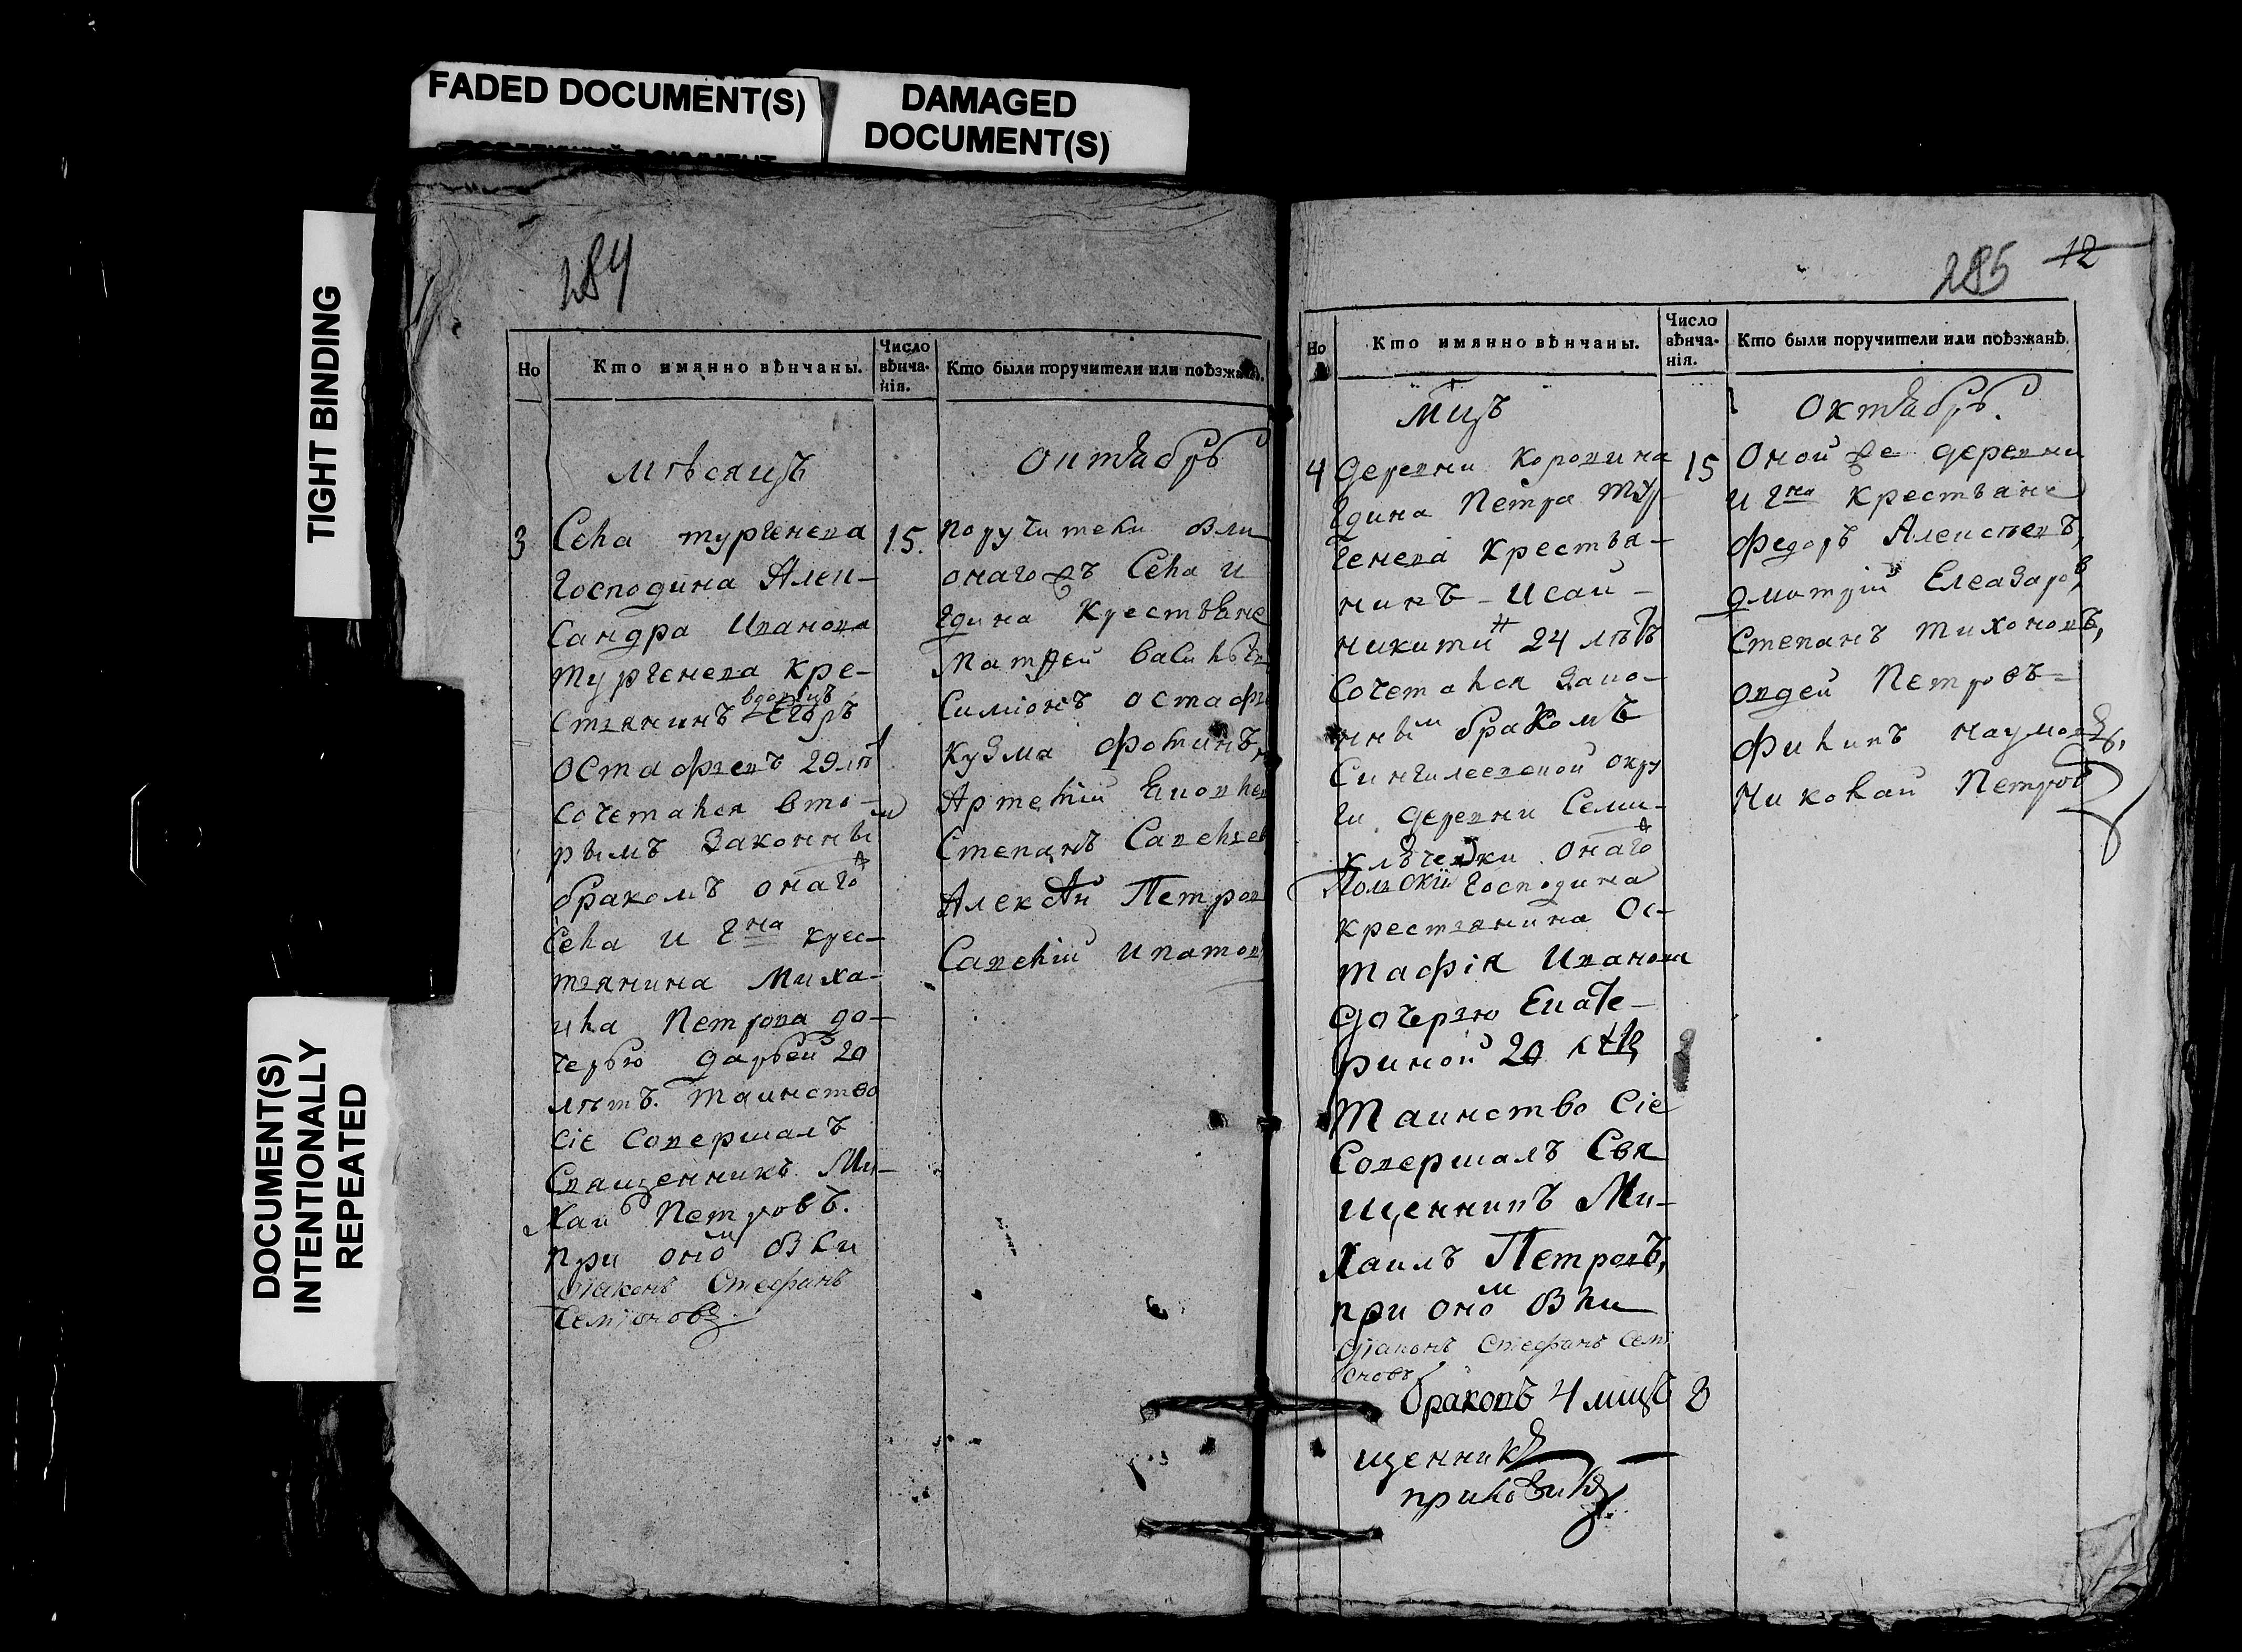 FADED DOCUMENT(S)
DAMAGED
DOCUMENT(S)
TIGHT BINDING
DOCUMENT(S)
INTENTIONALLY
REPEATED
284
Но
Кто имянно вѣнчаны.
Число
вѣнча-
нія.
Кто были поручители или поѣзжанѣ.
мѣсяцъ
октябрь
3
Села тургенева
господина Алек-
сандра Иванова
тургенева кре-
вдовецъ
стьянинъ Егоръ
Остафьевъ 29 лѣт
сочетался вто-
рымъ законны
бракомъ онаго
села и гна крес-
тьянина Миха-
ила Петрова до-
черью дарьей 20
лѣтъ. таинство
сіе совершалъ
Священникъ Ми-
хаи Петровъ.
при оном были
діаконъ Стефанъ
Семіоновъ
15.
поручители были
онагожъ села и
гдина крестьяне
Матвей
Симіонъ остафь
кузма
Степанъ Савельев
Петров
Савелій ипатов
285
12
Но
Кто имянно вѣнчаны.
Число
вѣнча-
нія.
Кто были поручители или поѣзжанѣ.
мцъ
октябрь.
4
деревни коровина
гдина Петра тур
генева крестья-
нинъ - исаи -
никити 24 лѣтъ
сочетался зако-
нным бракомъ
Сингилеевской окру
ги деревни Семи-
онаго
господина
крестьянина Ос-
тафія Иванова
дочерью Екате-
риной 20 лѣтъ
Таинство сіе
совершалъ Свя
щенникъ Ми-
хаилъ Петровъ,
при оном были
діаконъ Стефанъ Семі
оновъ
браковъ 4 мцъ 8
щенникъ
15
Оной же деревни
и гна крестьяне
Федоръ Алексеевъ,
дмитрій Елеазаров,
Степанъ тихоновъ,
авдей Петровъ =
филипъ наумовъ,
Николай Петровъ